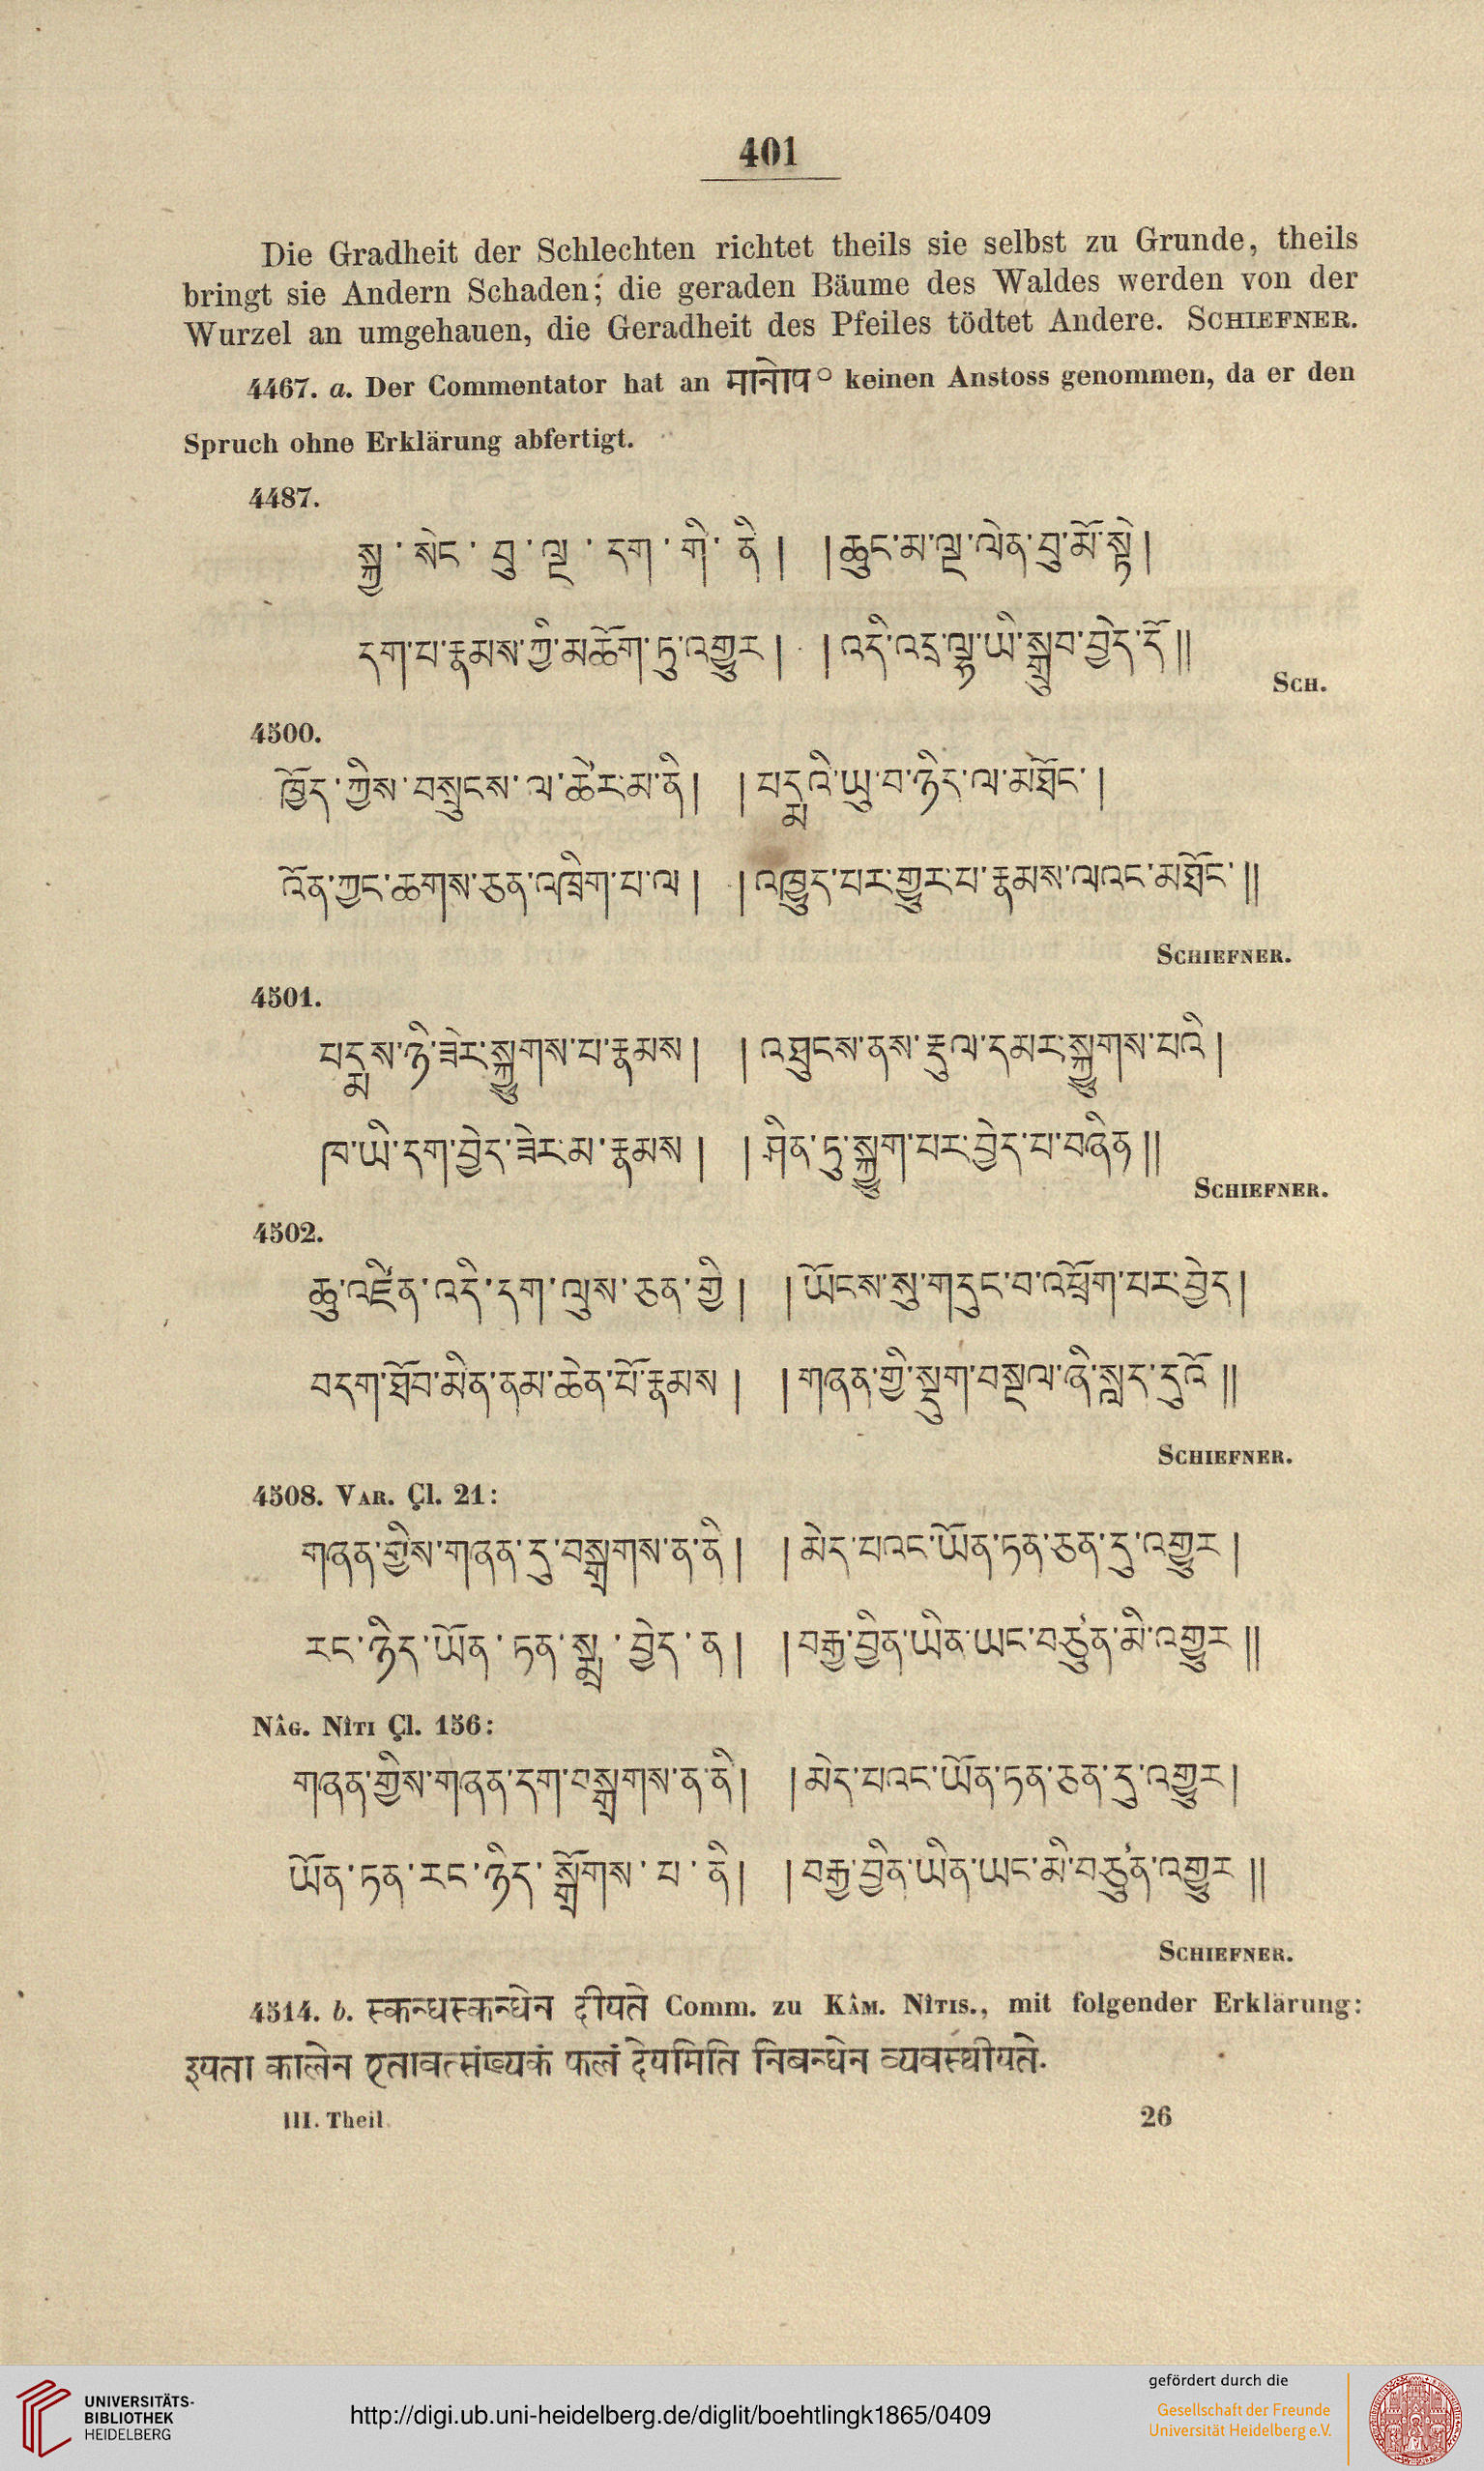 401
Die Gradheit der Schlechten richtet theils sie selbst zu Grunde, theils
bringt sie Andern Schaden; die geraden Bäume des Waldes werden von der
Wurzel an umgehauen, die Geradheit des Pfeiles tödtet Andere. Schiefner.
4467. a. Der Commentator hat an मानोप° keinen Anstoss genommen, da er den
Spruch ohne Erklärung abfertigt.
4487.
སྐྱ་སེང་བུ་ལྔ་དག་གི་ནི། །ཆུང་མ་ལྔ་ལེན་བུ་མོ་སྟེ།
དག་པ་རྣམས་ཀྱི་མཆོག་ཏུ་འགྱུར། །འདི་འདྲ་ལྟ་ཡི་སྒྲུབ་བྱེད་དོ༎
Sch.
4500.
ཁྱོད་ཀྱིས་བསྲུངས་ལ་ཚེར་མ་ནི། །པདྨའི་ཡུ་བ་ཉིད་ལ་མཐོང་།
འོན་ཀྱང་ཆགས་ཅན་འཁྲིག་པ་ལ། །འཁྱུད་པར་གྱུར་པ་རྣམས་ལའང་མཐོང་༎
Schiefner.
4501.
པདྨས་ཉི་ཟེར་སྐྱུགས་པ་རྣམས། །འཐུངས་ནས་རྡུལ་དམར་སྐྱུགས་པའི།
ཁ་ཡི་དག་བྱེད་ཟེར་མ་རྣམས། །ཤིན་ཏུ་སྐྱུག་པར་བྱེད་པ་བཞིན༎
Schiefner.
4502.
ཆུ་འཛིན་འདི་དག་ལུས་ཅན་གྱི། །ཡོངས་སུ་གདུང་བ་འཕྲོག་པར་བྱེད།
བདག་ཐོབ་མིན་ནམ་ཆེན་པོ་རྣམས། །གཞན་གྱི་སྡུག་བསྔལ་ཞི་སླད་དུའོ༎
Schiefner.
4508. Var. Çl. 21:
གཞན་གྱིས་གཞན་དུ་བསྒྲགས་ན་ནི། །མེད་པའང་ཡོན་ཏན་ཅན་དུ་འགྱུར།
རང་ཉིད་ཡོན་ཏན་སྨྲ་བྱེད་ན། །བརྒྱ་བྱིན་ཡིན་ཡང་བཙུན་མི་འགྱུར༎
Nâg. Nîti Çl. 156:
གཞན་གྱིས་གཞན་དག་བསྒྲགས་ན་ནི། །མེད་པའང་ཡོན་ཏན་ཅན་དུ་འགྱུར།
ཡོན་ཏན་རང་ཉིད་སྒྲོགས་པ་ནི། །བརྒྱ་བྱིན་ཡིན་ཡང་མི་བཙུན་འགྱུར༎
Schiefner.
4514. b. स्कन्धस्कन्धेन दीयते Comm. zu Kâm. Nîtis., mit folgender Erklärung:
इयता कालेन एतावत्संख्यकं फलं देयमिति निबन्धेन व्यवस्थीयते.
III. Theil. 26
UNIVERSITÄTS-
BIBLIOTHEK
HEIDELBERG
http://digi.ub.uni-heidelberg.de/diglit/boehtlingk1865/0409
gefördert durch die
Gesellschaft der Freunde
Universität Heidelberg e.V.